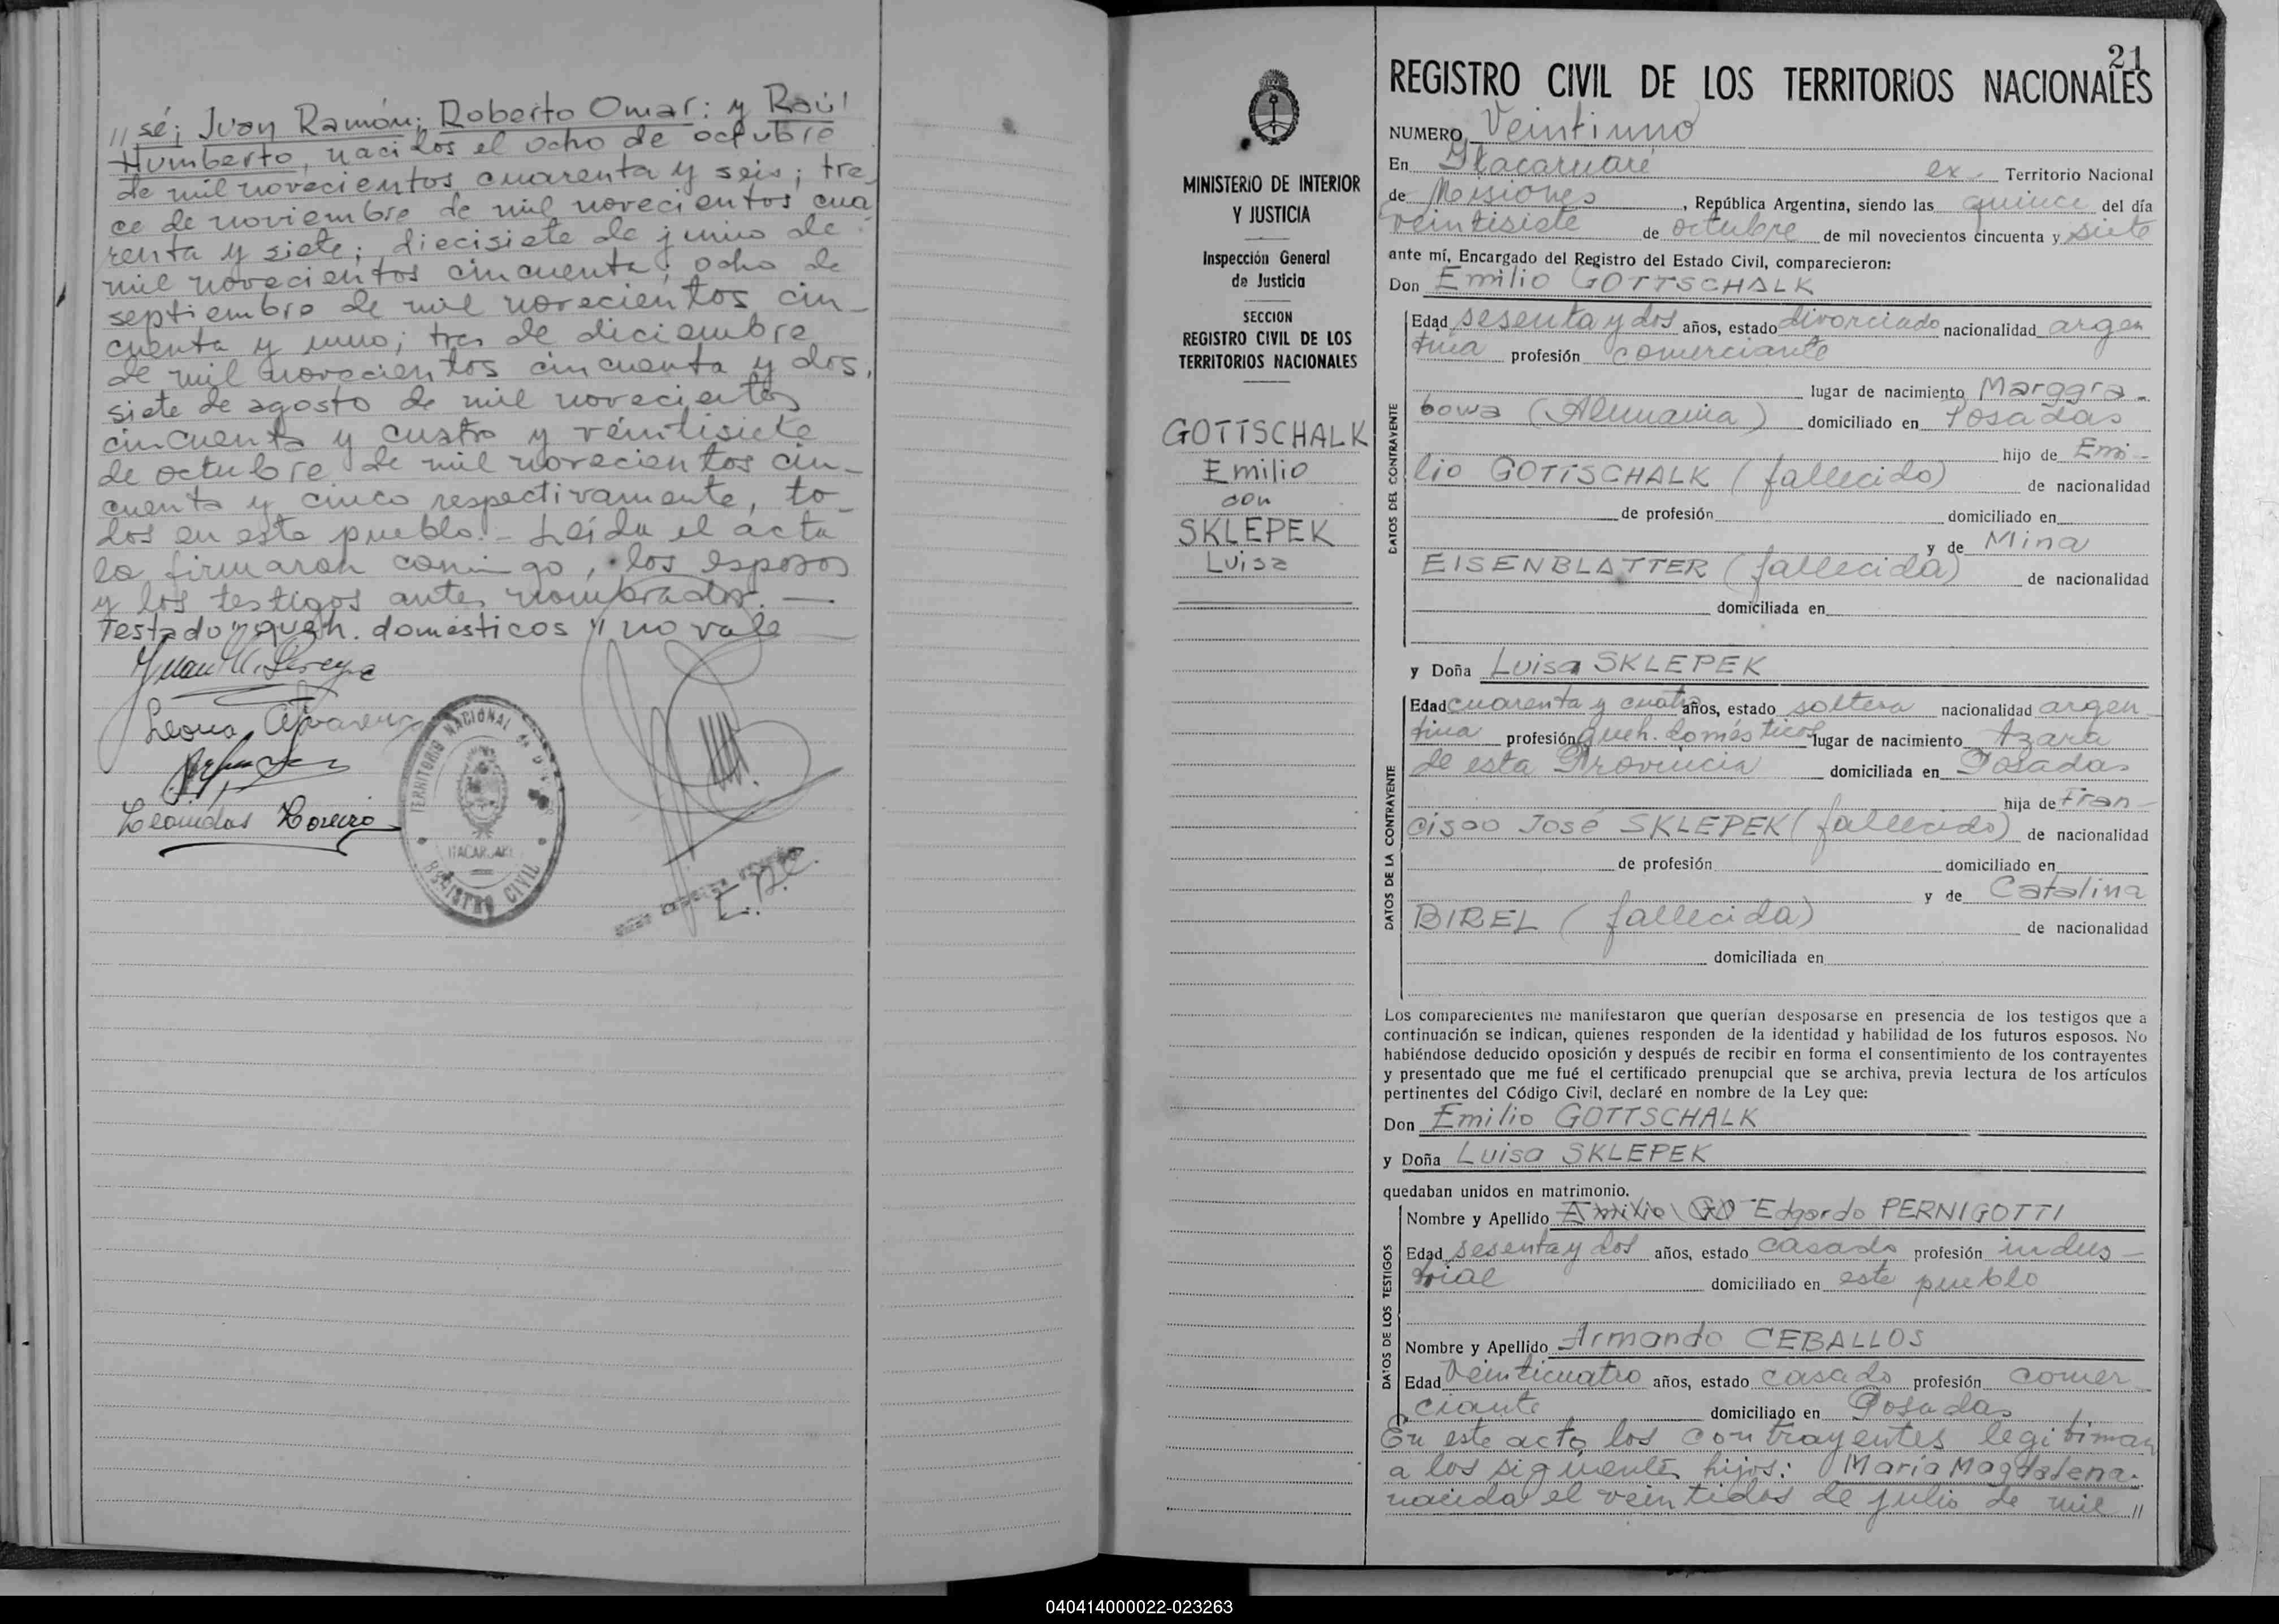 // sé; Juan Ramón; Roberto Omar; y Raúl
Humberto, nacidos el ocho de octubre
de mil novecientos cuarenta y seis; tre
ce de noviembre de mil novecientos cua
renta y siete; diecisiete de junio de
mil novecientos cincuenta; ocho de
septiembre de mil novecientos cin-
cuenta y uno; tres de diciembre
de mil novecientos cincuenta y dos,
siete de agosto de mil novecientos
cincuenta y cuatro y veintisiete
de octubre de mil novecientos cin-
cuenta y cinco respectivamente, to-
dos en este pueblo.- Leída el acta
la firmaron conmigo, los esposos
y los testigos antes nombrados. —
Testado "queh. domésticos" no vale
Leonidas
TERRITORIO NACIONAL
ITACARUARE
REGISTRO CIVIL
MINISTERIO DE INTERIOR
Y JUSTICIA
Inspección General
de Justicia
SECCION
REGISTRO CIVIL DE LOS
TERRITORIOS NACIONALES
GOTTSCHALK
Emilio
con
SKLEPEK
Luisa
21
REGISTRO CIVIL DE LOS TERRITORIOS NACIONALES
NUMERO Veintiuno
En Itacaruaré ex- Territorio Nacional
de Misiones, República Argentina, siendo las quince del día
veintisiete de octubre de mil novecientos cincuenta y siete
ante mí, Encargado del Registro del Estado Civil, comparecieron:
Don Emilio GOTTSCHALK
DATOS DEL CONTRAYENTE
Edad sesenta y dos años, estado divorciado nacionalidad argen
tina profesión comerciante
lugar de nacimiento Marggra-
bowa (Alemania) domiciliado en Posadas
hijo de Emi-
lio GOTTSCHALK (fallecido) de nacionalidad
de profesión domiciliado en
y de Mina
EISENBLATTER (fallecida) de nacionalidad
domiciliada en
y Doña Luisa SKLEPEK
DATOS DE LA CONTRAYENTE
Edad cuarenta y cuatro años, estado soltera nacionalidad argen-
tina profesión queh. domésticos lugar de nacimiento Azara
de esta Provincia domiciliada en Posadas
hija de Fran-
cisco José SKLEPEK (fallecido) de nacionalidad
de profesión domiciliado en
y de Catalina
BIREL (fallecida) de nacionalidad
domiciliada en
Los comparecientes me manifestaron que querían desposarse en presencia de los testigos que a
continuación se indican, quienes responden de la identidad y habilidad de los futuros esposos. No
habiéndose deducido oposición y después de recibir en forma el consentimiento de los contrayentes
y presentado que me fué el certificado prenupcial que se archiva, previa lectura de los artículos
pertinentes del Código Civil, declaré en nombre de la Ley que:
Don Emilio GOTTSCHALK
y Doña Luisa SKLEPEK
quedaban unidos en matrimonio.
DATOS DE LOS TESTIGOS
Nombre y Apellido Emilio GO Edgardo PERNIGOTTI
Edad sesenta y dos años, estado casado profesión indus-
trial domiciliado en este pueblo
Nombre y Apellido Armando CEBALLOS
Edad Veinticuatro años, estado casado profesión comer
ciante domiciliado en Posadas
En este acto los contrayentes legitiman
a los siguientes hijos: María Magdalena.
nacida el veintidos de julio de mil //
040414000022-023263